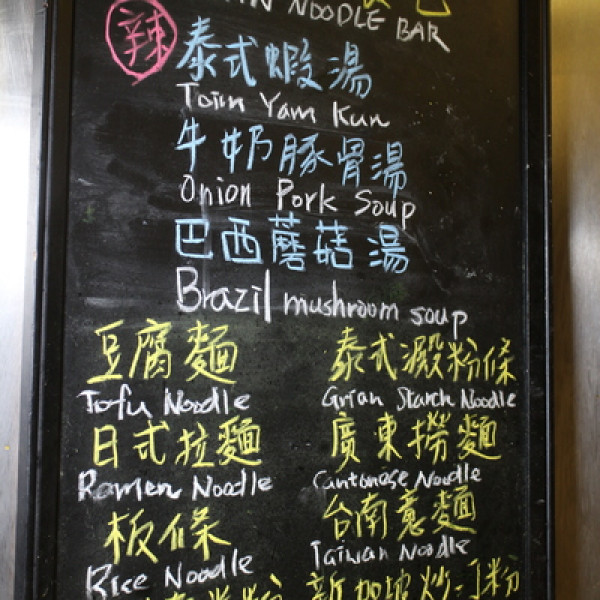 NOODLE BAR
辣 泰式蝦湯
Tom Yam Kun
牛奶豚骨湯
Onion Pork Soup
巴西蘑菇湯
Brazil mushroom soup
豆腐麵 泰式澱粉條
Tofu Noodle Grian Starch Noodle
日式拉麵 廣東撈麵
Ramen Noodle Cantonese Noodle
板條 台南意麵
Rice Noodle Taiwan Noodle
新加坡炒